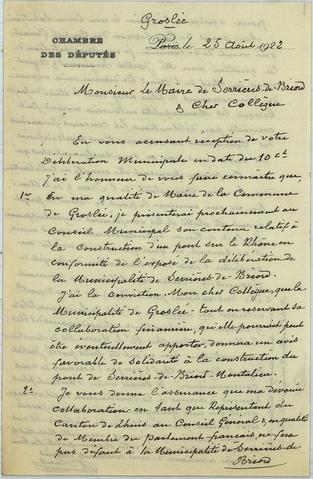 Groslée
CHAMBRE
DES DÉPUTÉS
Paris, le 25 Août 1922
Monsieur Le Maire de Serrières-de-Briord
& Cher Collègue
En vous accusant réception de votre
Délibération Municipale en date du 10 ct
J'ai l'honneur de vous faire connaître que,
1º En ma qualité de Maire de la Commune
de Groslée, je présenterai prochainement au
Conseil Municipal son contenu relatif à
la Construction d'un pont sur le Rhône en
conformité de l'exposé de la délibération de
la Municipalité de Serrières-de-Briord.
J'ai la conviction, Mon cher Collègue, que la
Municipalité de Groslée - tout en réservant sa
collaboration financière, qu'elle pourrait peut
être éventuellement apporter, donnera un avis
favorable de Solidarité à la construction du
pont de Serrières-de-Briord-Montalieu.
2º Je vous donne l'assurance que ma dévouée
collaboration en tant que Représentant du
Canton de Lhuis au Conseil Général & en qualité
de Membre du Parlement français ne fera
pas défaut à la Municipalité de Serrières-de-
Briord